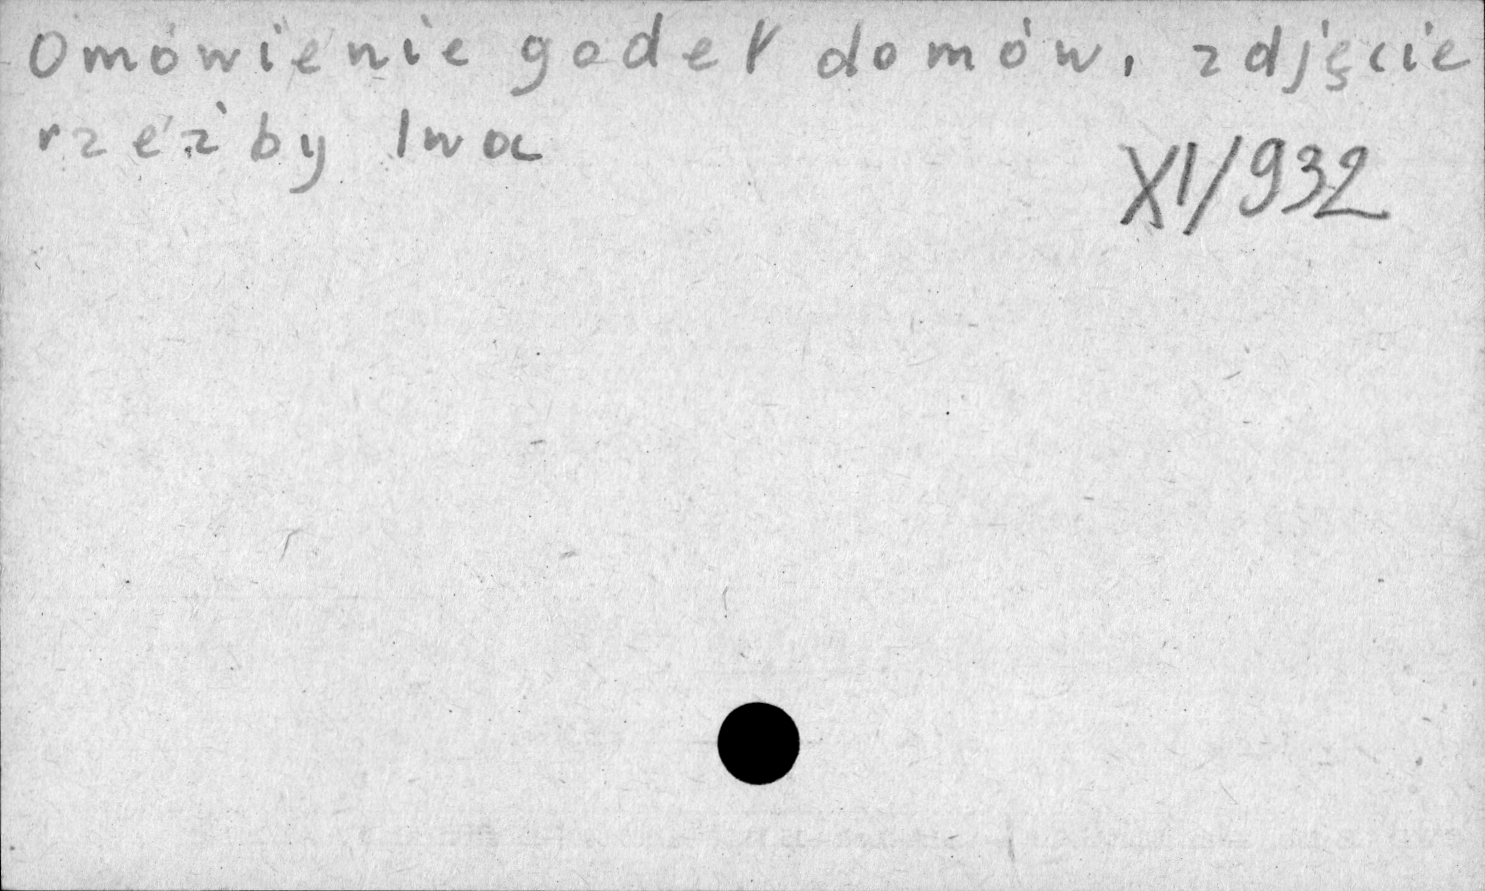 Omówienie godeł domów, zdjęcie
rzeźby lwa
XI/932